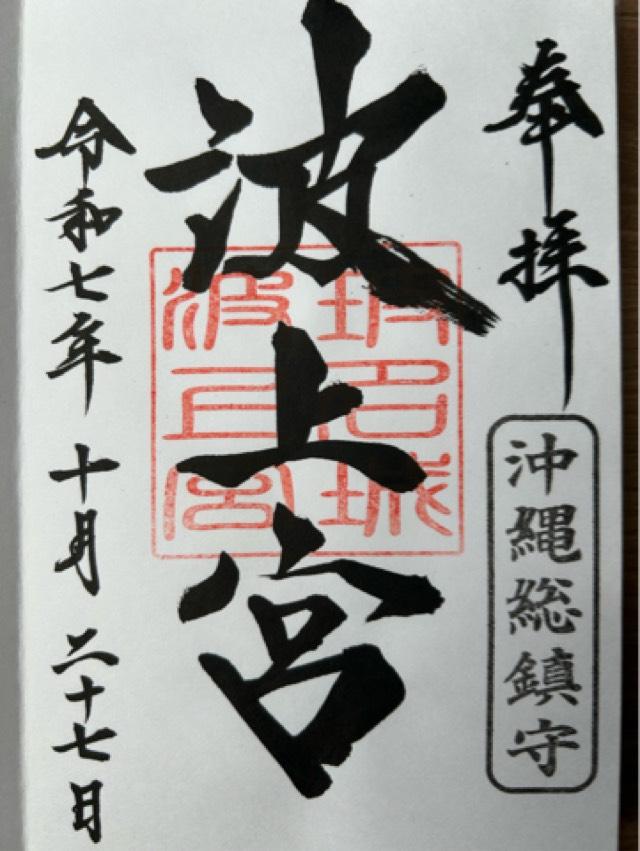 奉拝
沖縄総鎮守
波上宮
令和七年 十月 二十七日